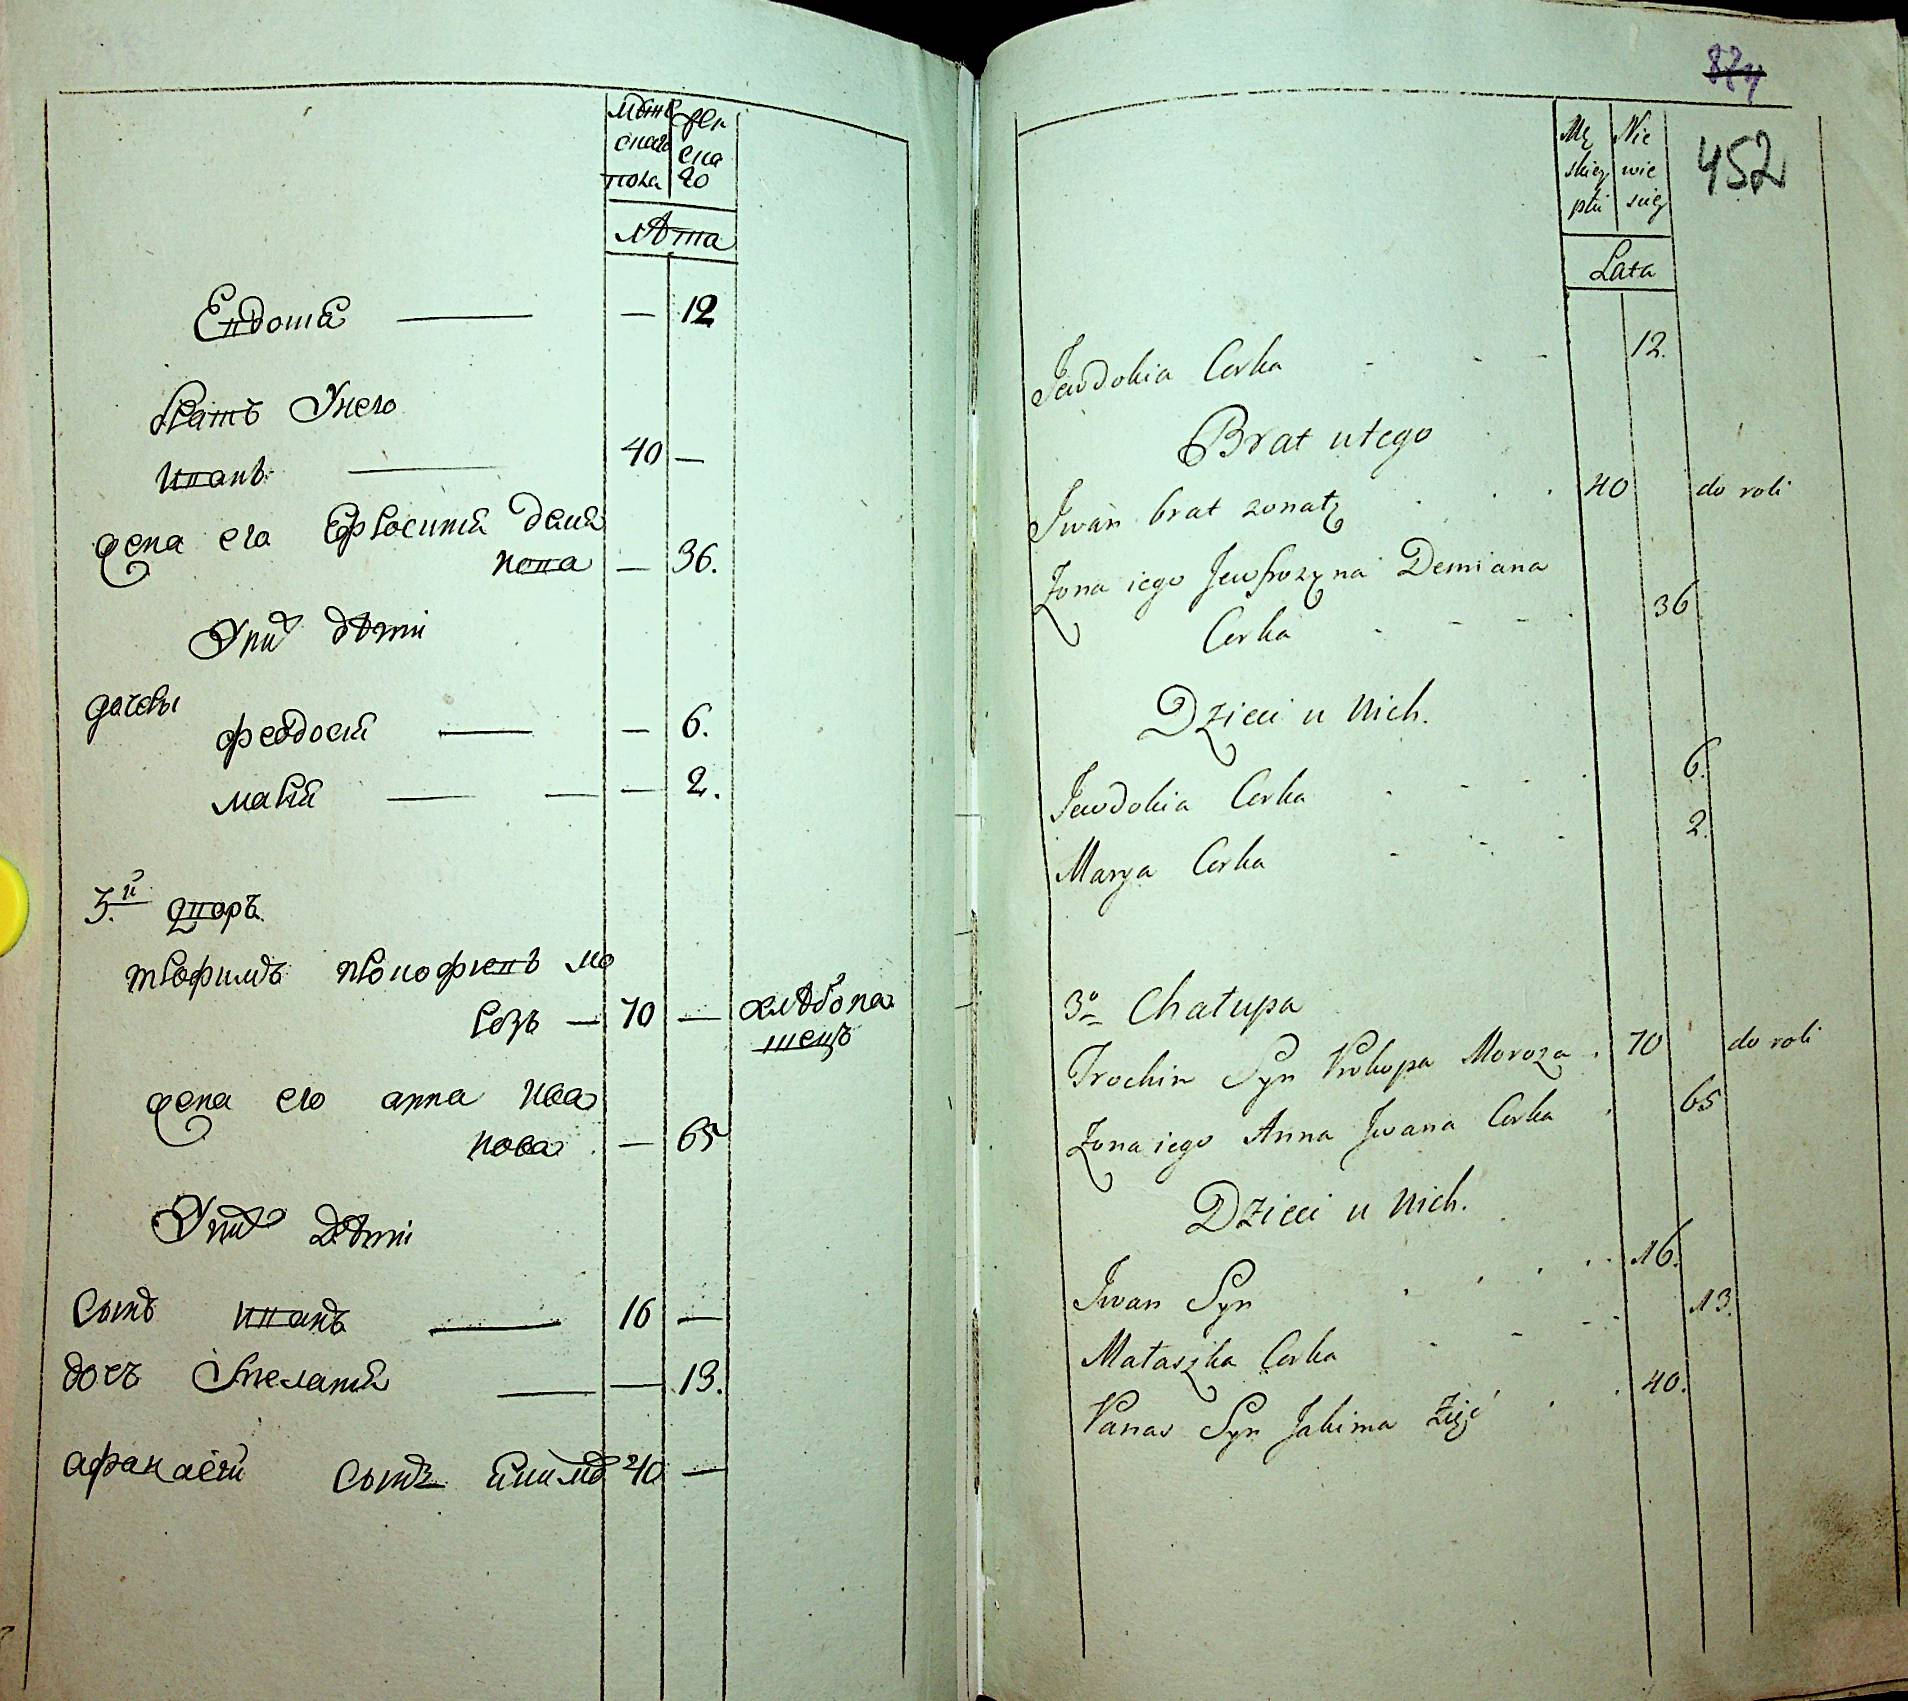 мужескаго пола
женскаго
лѣта
Евдокія — — 12
Братъ Унего
Иванъ — 40 —
жена его Ефросинія деми
нова — 36.
Унихъ дѣти
дочеры
феодосія — — 6.
марія — — — 2.
3.й дворъ.
трофимъ прокофіевъ мо
розъ — 70 — хлѣбопа
шецъ
жена его анна ива
нова — 65
Унихъ Дѣти
Сынъ иванъ — 16 —
дочь — 13.
афанасій сынъ якимъ 40 —
874
452
Mę
skiey
płci
Nie
wie
sciey
Lata
Jewdokia Corka 12.
Brat u tego
Jwan brat zonaty 40 do roli
Zona iego Jewfrozyna Demiana
Corka 36
Dzieci u Nich.
Jewdokia Corka 6.
Marya Corka 2.
3o Chałupa
Trochim Syn Prokopa Moroza 70 do roli
Zona iego Anna Jwana Corka 65
Dzieci u Nich.
Jwan Syn 16.
Malaszka Corka 13.
Panas Syn Jakima 40.